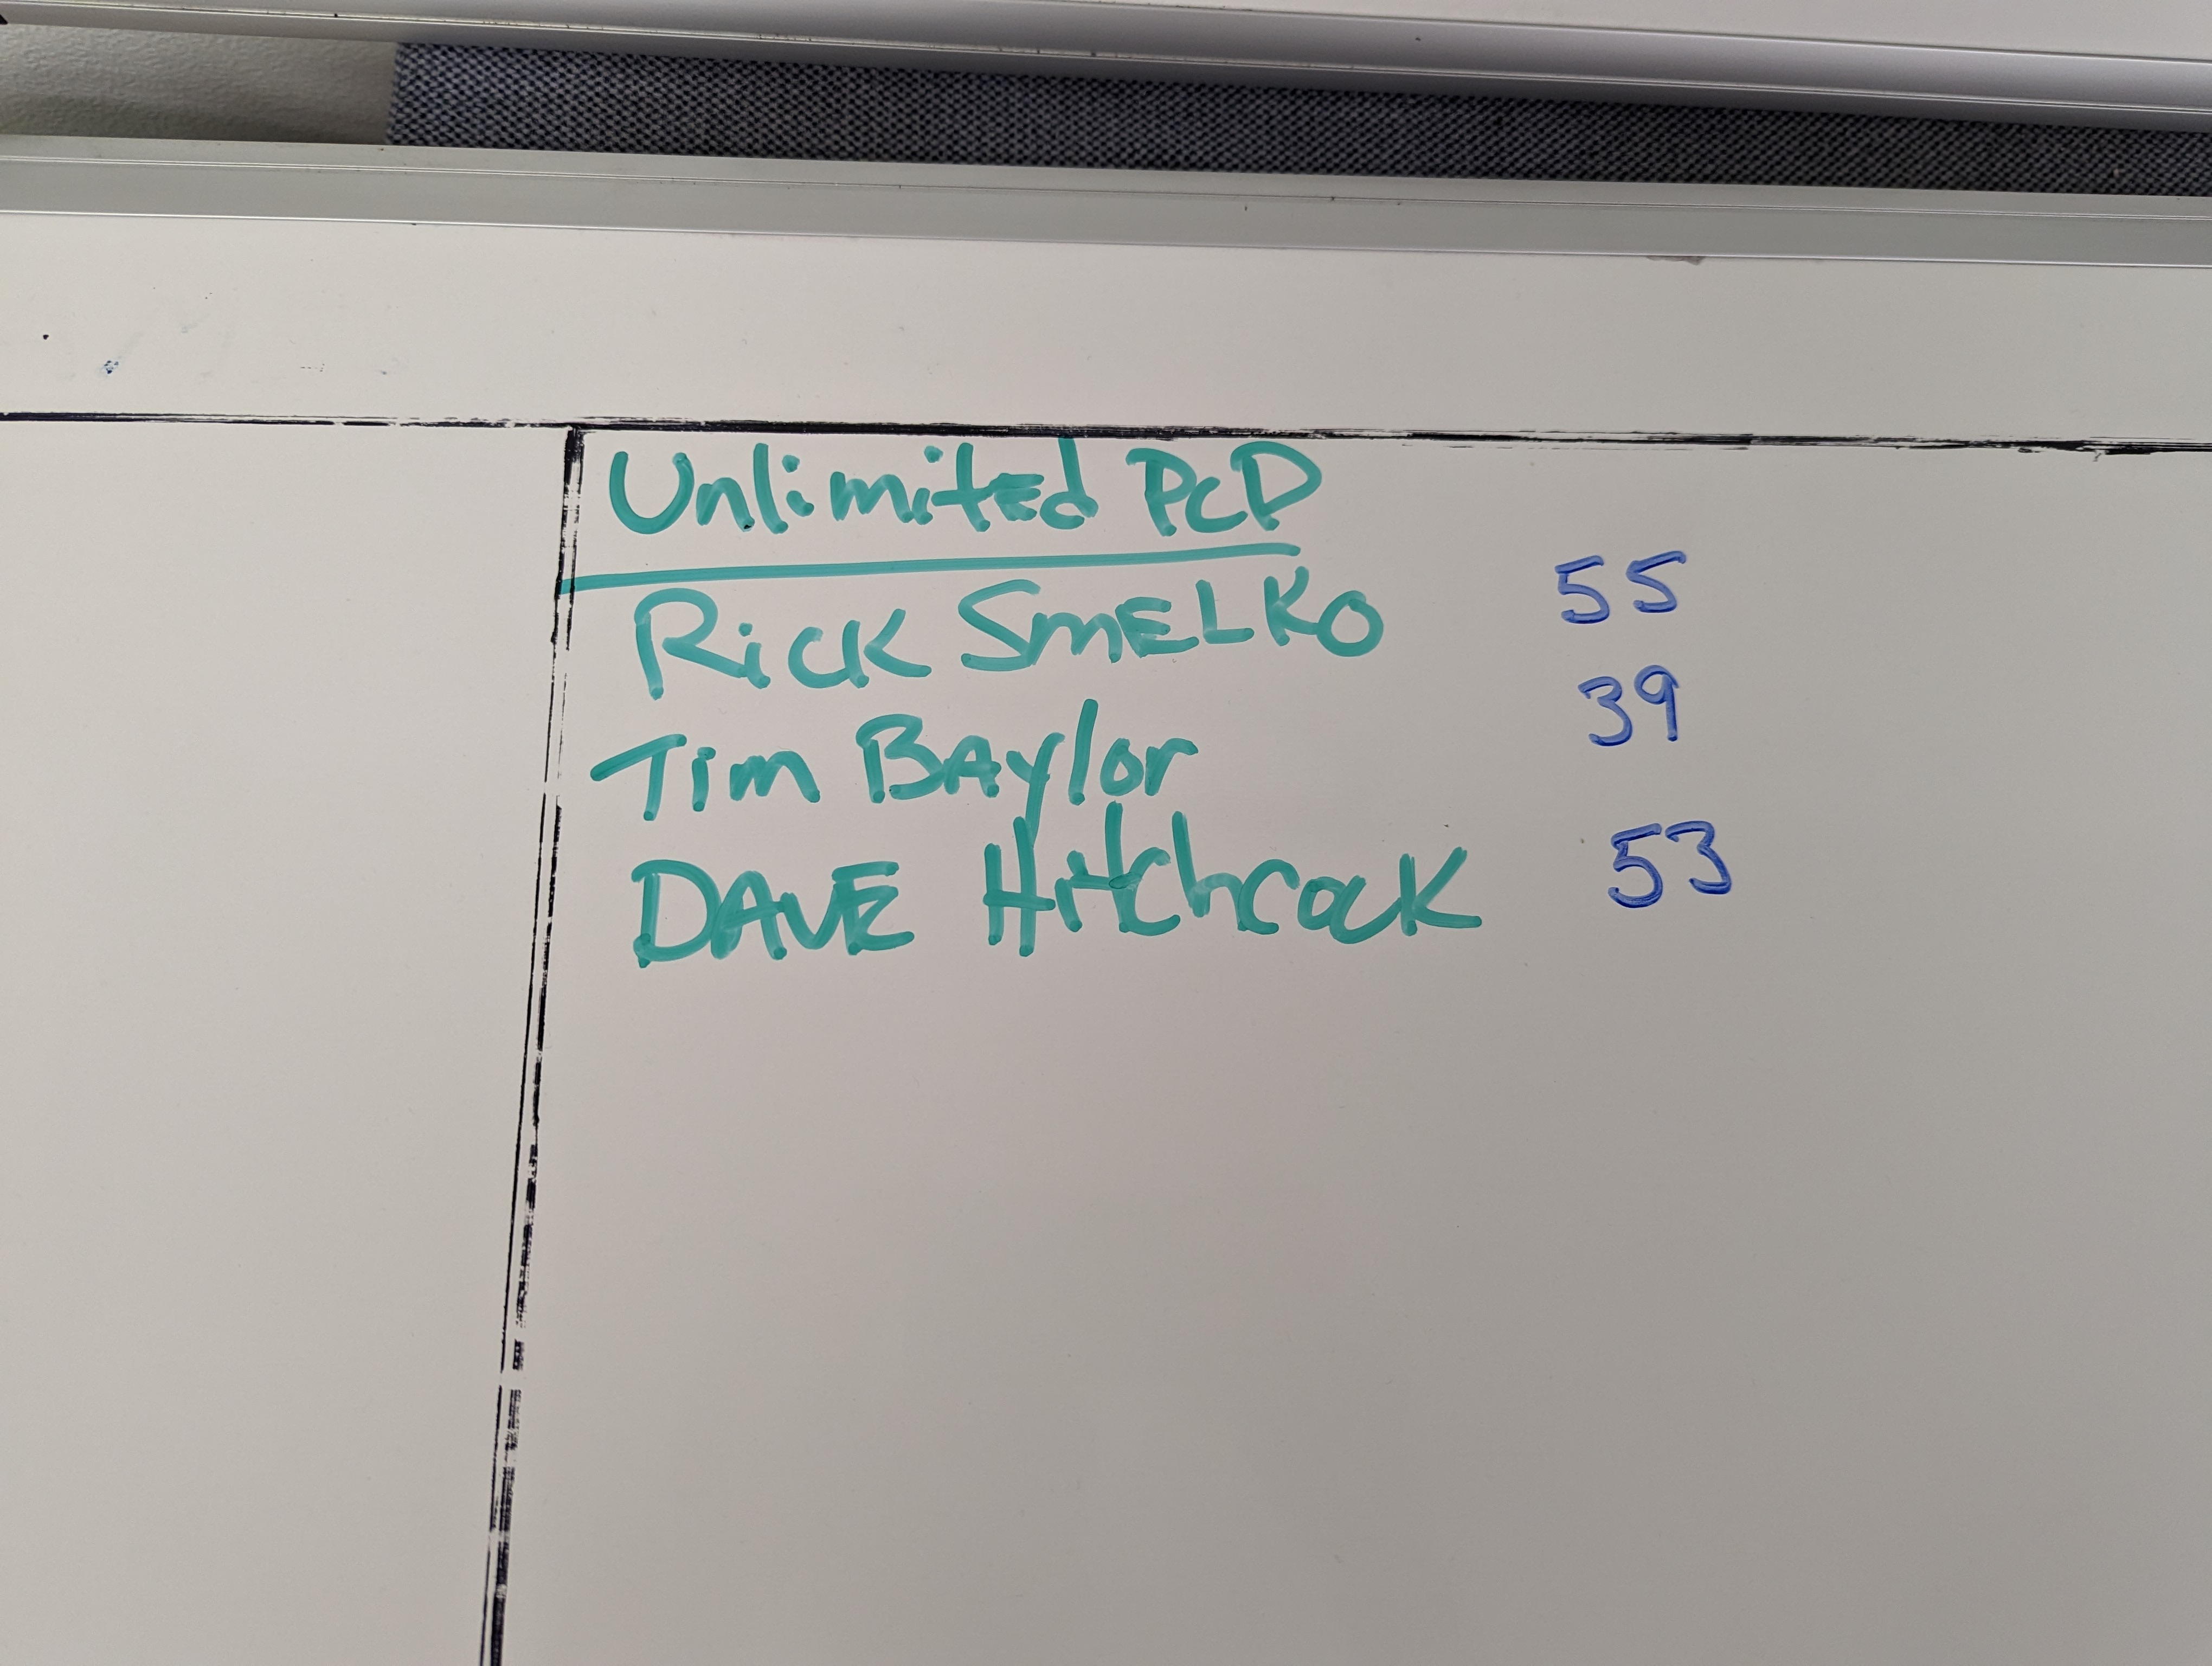 Unlimited PCD
Rick SmELKO 55
Tim BAylor 39
DAVE Hitchcock 53